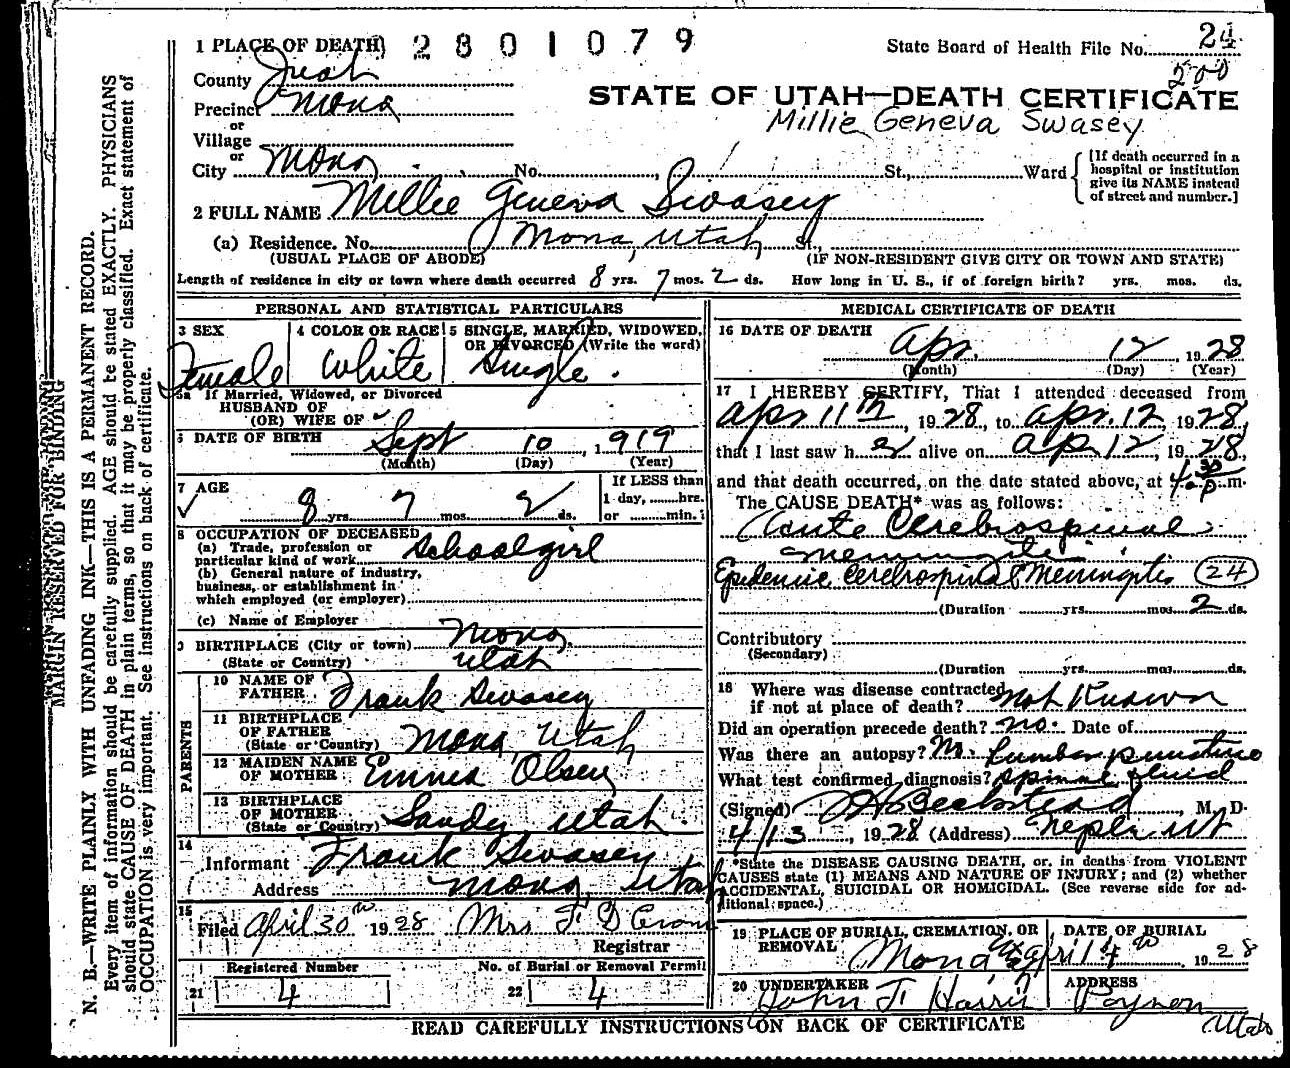 1 PLACE OF DEATH 2801079
State Board of Health File No. 24
200
County Juab
STATE OF UTAH—DEATH CERTIFICATE
Precinct Mona
Millie Geneva Swasey
or
Village
or
City Mona No. St., Ward
[If death occurred in a hospital or institution give its NAME instead of street and number.]
2 FULL NAME Millie Geneva Swasey
(a) Residence. No. Mona, Utah St.,
(USUAL PLACE OF ABODE) (IF NON-RESIDENT GIVE CITY OR TOWN AND STATE)
Length of residence in city or town where death occurred 8 yrs. 7 mos. 2 ds. How long in U. S., if of foreign birth? yrs. mos. ds.
PERSONAL AND STATISTICAL PARTICULARS
3 SEX Female
4 COLOR OR RACE White
5 SINGLE, MARRIED, WIDOWED, OR DIVORCED (Write the word) Single.
5a If Married, Widowed, or Divorced
HUSBAND OF
(OR) WIFE OF
6 DATE OF BIRTH Sept 10, 1919
(Month) (Day) (Year)
7 AGE 8 yrs. 7 mos. 2 ds.
If LESS than
1 day, hrs.
or min.
8 OCCUPATION OF DECEASED
(a) Trade, profession or
particular kind of work School girl
(b) General nature of industry,
business, or establishment in
which employed (or employer)
(c) Name of Employer
9 BIRTHPLACE (City or town) Mona
(State or Country) Utah
PARENTS
10 NAME OF FATHER Frank Swasey
11 BIRTHPLACE OF FATHER (State or Country) Mona, Utah
12 MAIDEN NAME OF MOTHER Emma Olsen
13 BIRTHPLACE OF MOTHER (State or Country) Sandy Utah.
14
Informant Frank Swasey
Address Mona, Utah
15
Filed April 30th 1928 Mrs F D
Registrar
Registered Number No. of Burial or Removal Permit
21 4 22 4
MEDICAL CERTIFICATE OF DEATH
16 DATE OF DEATH
Apr. 12, 1928
(Month) (Day) (Year)
17 I HEREBY CERTIFY, That I attended deceased from
Apr 11th, 1928, to Apr. 12, 1928,
that I last saw her alive on Apr 12, 1928,
and that death occurred, on the date stated above, at 4:30 P. m.
The CAUSE DEATH* was as follows:
Acute Cerebrospinal
Meningitis
Epidemic Cerebrospinal Meningitis (24)
(Duration yrs. mos. 2 ds.
Contributory
(Secondary)
(Duration yrs. mos. ds.
18 Where was disease contracted
if not at place of death? Not Known
Did an operation precede death? no. Date of
Was there an autopsy? No. Lumbar puncture
What test confirmed diagnosis? spinal fluid
(Signed) Beckstead, M. D.
4/13, 1928 (Address) Nephi Ut
*State the DISEASE CAUSING DEATH, or, in deaths from VIOLENT
CAUSES state (1) MEANS AND NATURE OF INJURY; and (2) whether
ACCIDENTAL, SUICIDAL OR HOMICIDAL. (See reverse side for ad-
ditional space.)
19 PLACE OF BURIAL, CREMATION, OR REMOVAL Mona Ut
DATE OF BURIAL April 14th, 1928
20 UNDERTAKER John T.
ADDRESS Payson Utah
READ CAREFULLY INSTRUCTIONS ON BACK OF CERTIFICATE
MARGIN RESERVED FOR BINDING
N. B.—WRITE PLAINLY WITH UNFADING INK—THIS IS A PERMANENT RECORD.
Every item of information should be carefully supplied. AGE should be stated EXACTLY. PHYSICIANS
should state CAUSE OF DEATH in plain terms, so that it may be properly classified. Exact statement of
OCCUPATION is very important. See instructions on back of certificate.